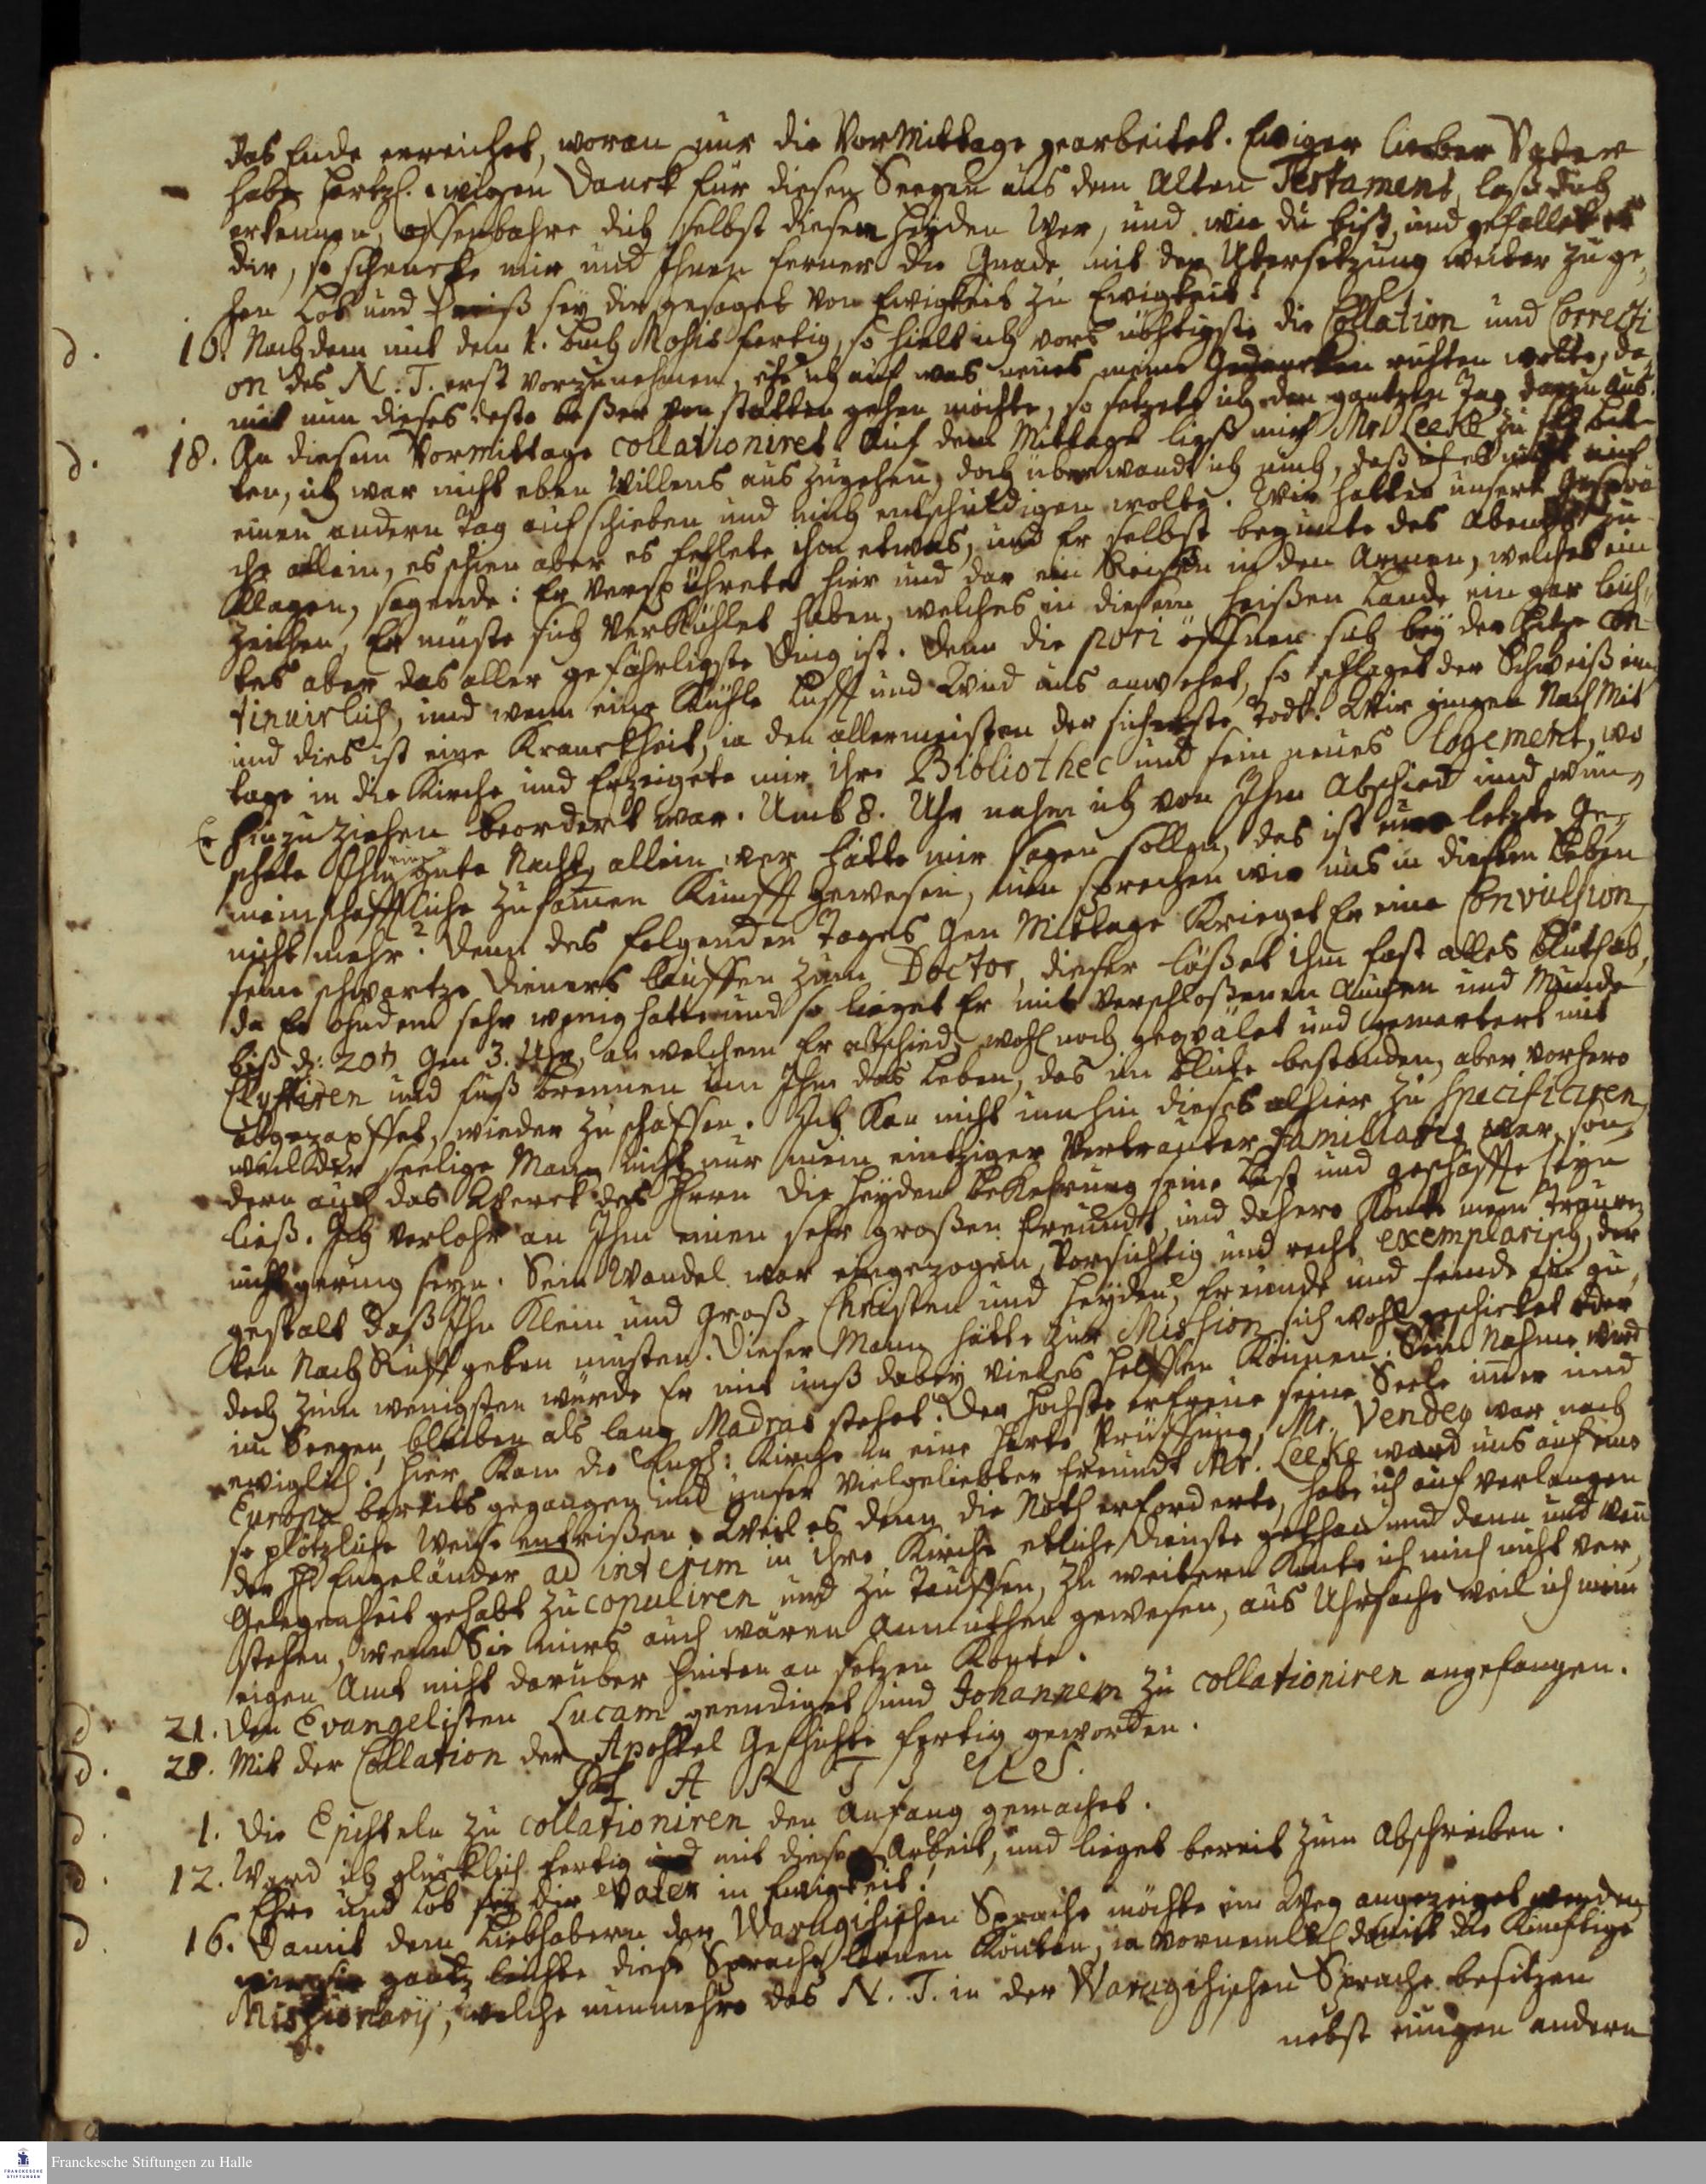 das Ende erreichet, woran nur die VorMittage gearbeitet. Ewiger lieber Vater
habe hertzl. ewigen Danck für diesen Seegen aus dem Alten Testament, laß dich
erkennen, offenbahre dich selbst diesen Heyden Wer, und wie du bist, und gefället es
dir, so schencke mir und Ihnen ferner die Gnade mit der Ubersetzung weiter zu ge-
hen Lob und Preiß sey dir gesaget von Ewigkeit zu Ewigkeit!
d. 10. Nachdem mit dem 1. buch Mosis fertig, so hielt ich vors nöhtigste die Collation und Correcti
on des N. T. erst vorzunehmen, ehe ich auf was neues meine Gedancken richten wolte, da
mit nun dieses desto beßer von statten gehen möchte, so setzete ich den gantzen Tag dazu aus.
d. 18. An diesem Vormittage collationiret. Auf dem Mittage ließ mich Mr. Leeke zu sich bit
ten, ich war nicht eben Willens auszugehen, doch überwandt ich mich, daß ich es nicht auf
einen andern Tag aufschieben und mich entschuldigen wolte. Wir hatten unsere Gesprä
che allein, es schien aber es fehlete ihm etwas, und Er selbst begunte des Abends zu
klagen, sagende: Er verspührete hier und dar ein Reißen in den Armen, welches ein
Zeichen, Er müste sich Verkühlet haben, welches in diesem heißen Lande ein gar leich-
tes aber das aller gefährligste Ding ist. Denn die pori öffnen sich bey der Hitze con
tinuirlich, und wenn eine Kühle Lufft und Wind uns anwehet, so schlaget der Schweiß ein
und dies ist eine Kranckheit, ia den allermeisten der sicherste Todt. Wir gingen Nach Mit
tage in die Kirche und Er zeigete mir ihre Bibliothec und sein neues logement, wo
Er hinzuziehen beordert war. Umb 8. Uhr nahm ich von Ihm Abschied und wün-
schete Ihm eine gute Nacht, allein wer hätte mir sagen sollen, das ist eure letzte Ge-
meinschafftliche Zusammen Kunfft gewesen, nun sprechen wir uns in diesem Leben
nicht mehr? Denn des folgenden Tages Gen Mittage Krieget Er eine Convulsion,
seine schwartze Dieners lauffen zum Doctor, dieser läßet ihm fast alles Blut ab,
da Er ohndem sehr wenig hatte und so lieget Er mit verschloßenen Augen und Munde
biß d: 20ten Gen 3. Uhr, an welchem Er abschied, wohl noch gequälet und gemartert mit
Clystiren und Fuß brennen um Ihm das Leben, das im blute bestanden, aber vorhero
abgezapffet, wieder zu schaffen. Ich kan nicht umhin dieses alhier zu specificiren,
weil der seelige Mann nicht nur mein eintziger Vertrauter familiaris war, son-
dern auch das Werck des Herrn die Heyden bekehrung seine Lust und geschäffte seyn
ließ. Ich verlohr an Ihm einen sehr großen Freundt, und dahero konte mein Trauren
nicht gering seyn. Sein Wandel war eingezogen, vorsichtig und recht exemplarisch, der
gestalt daß Ihn Klein und Groß, Christen und Heyden, Freunde und Feinde ein gu-
ten Nach Ruff geben musten. Dieser Mann hätte zur Mission sich wohl geschicket oder
doch zum wenigsten würde Er mit unß dabey vieles helffen können. Sein Nahme wird
im Seegen bleiben als lang Madras stehet. Der Höchste erfreue seine Seele immer und
ewiglich! Hier kam die Engl: Kirche in eine harte Prüffung, Mr. Vendey war nach
Europa bereits gegangen und unser vielgeliebter Freundt Mr. Leeke ward uns auf eine
so plötzliche Weise entrißen. Weil es denn die Noth erforderte, habe ich auf verlangen
der HE Engeländer ad interim in ihre Kirche etliche Dienste gethan und dann und wan
Gelegenheit gehabt zu copuliren und zu Tauffen, Zu weitern konte ich mich nicht ver-
stehen, wenn Sie mirs auch wären anmuthen gewesen, aus Uhrsache weil ich mein
eigen Amt nicht darüber hinten an setzen konte.
d. 21. Den Evangelisten Lucam geendiget und Johannem zu collationiren angefangen.
d. 28. Mit der Collation der Apostel Geschichte fertig geworden.
MARTIUS.
d. 1. Die Episteln zu collationiren den Anfang gemachet.
d. 12. Ward ich glücklich fertig mit dieser Arbeit, und lieget bereit zum Abschreiben.
Ehre und Lob sey dir Vater in Ewigkeit!
d. 16. Damit dem Liebhabern der Warugischen Sprache möchte ein Weg angezeiget werden,
wie sie gantz leichte diese Sprache lernen könten, ia vornemlich damit die künftige
Missionarij, welche nunmehro das N. T. in der Warugischen Sprache besitzen
nebst einigen andern
Franckesche Stiftungen zu Halle